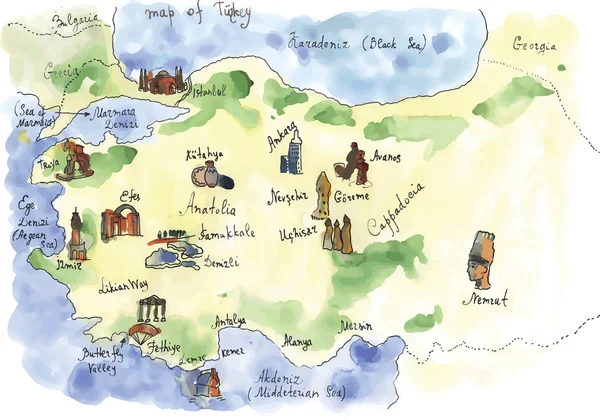 map of Türkey
Bulgaria
Karadeniz (Black Sea)
Georgia
Grecia
Istanbul
(Sea of
Marmara)
Marmara
Denizi
Ankara
Troya
Kütahya
Avanos
Efes
Anatolia
Nevşehir
Göreme
Cappadocia
Ege
Denizi
(Aegean
Sea)
Pamukkale
Uçhisar
Izmir
Denizli
Likian Way
Nemrut
Antalya
Mersin
Alanya
Butterfly
Valley
Fethiye
Demre
Kemer
Akdeniz
(Middeterian Sea)